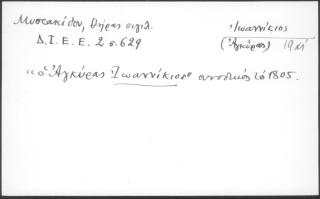 Μυστακίδου, Θήρας σιγιλ.
Δ.Ι.Ε.Ε. 2 σ. 629
Ἰωαννίκιος
(Ἀγκύρας)
"ὁ Ἀγκύρας Ἰωαννίκιος" συνοδικός τό 1805.